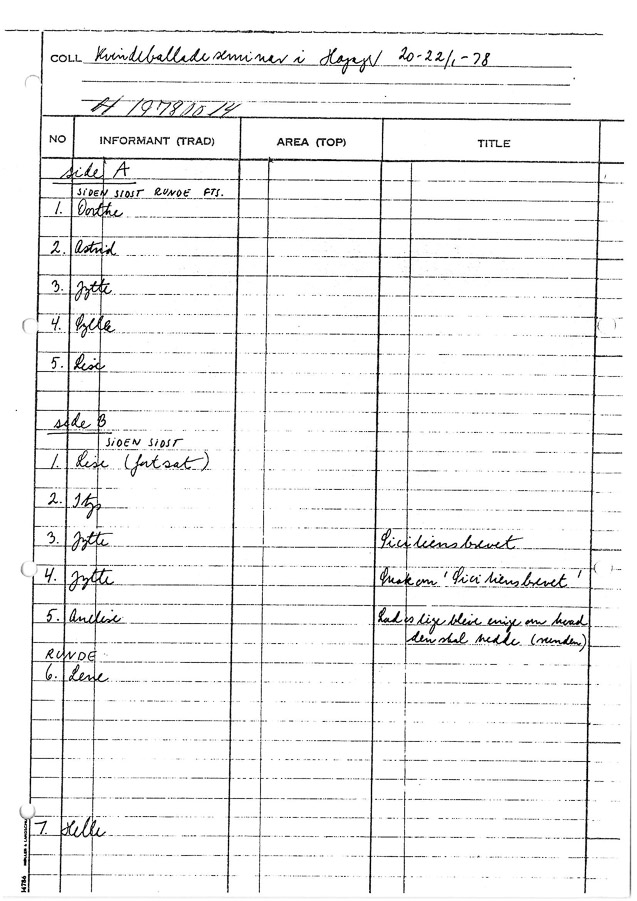 COLL Kvindeballadeseminar i 20-22/1-78
H 19780014
NO INFORMANT (TRAD) AREA (TOP) TITLE
side A
SIDEN SIDST RUNDE FTS.
1. Dorthe
2. Astrid
3. Jytte
4. Pylle
5. Lise
side B
SIDEN SIDST
1. Lise (fortsat)
2.
3. Jytte Siciliensbrevet
4. Jytte Snak om 'Siciliensbrevet'
5. Anelise Lad os lige blive enige om hvad
den skal hedde (runden)
RUNDE
6. Lene
7. Helle
14786